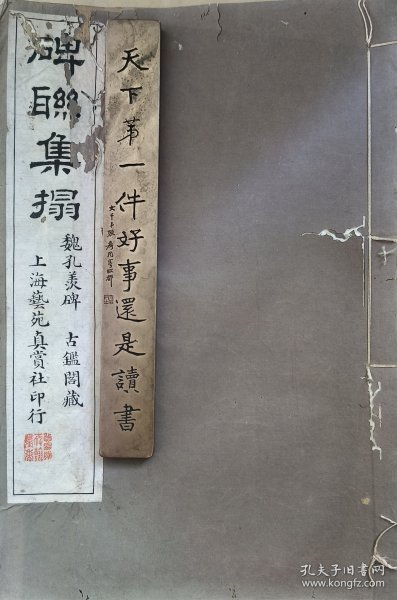 碑聯集搨
魏孔羨碑 古鑑閣藏
上海藝苑真賞社印行
天下第一件好事還是讀書
孔夫子旧书网
www.kongfz.com